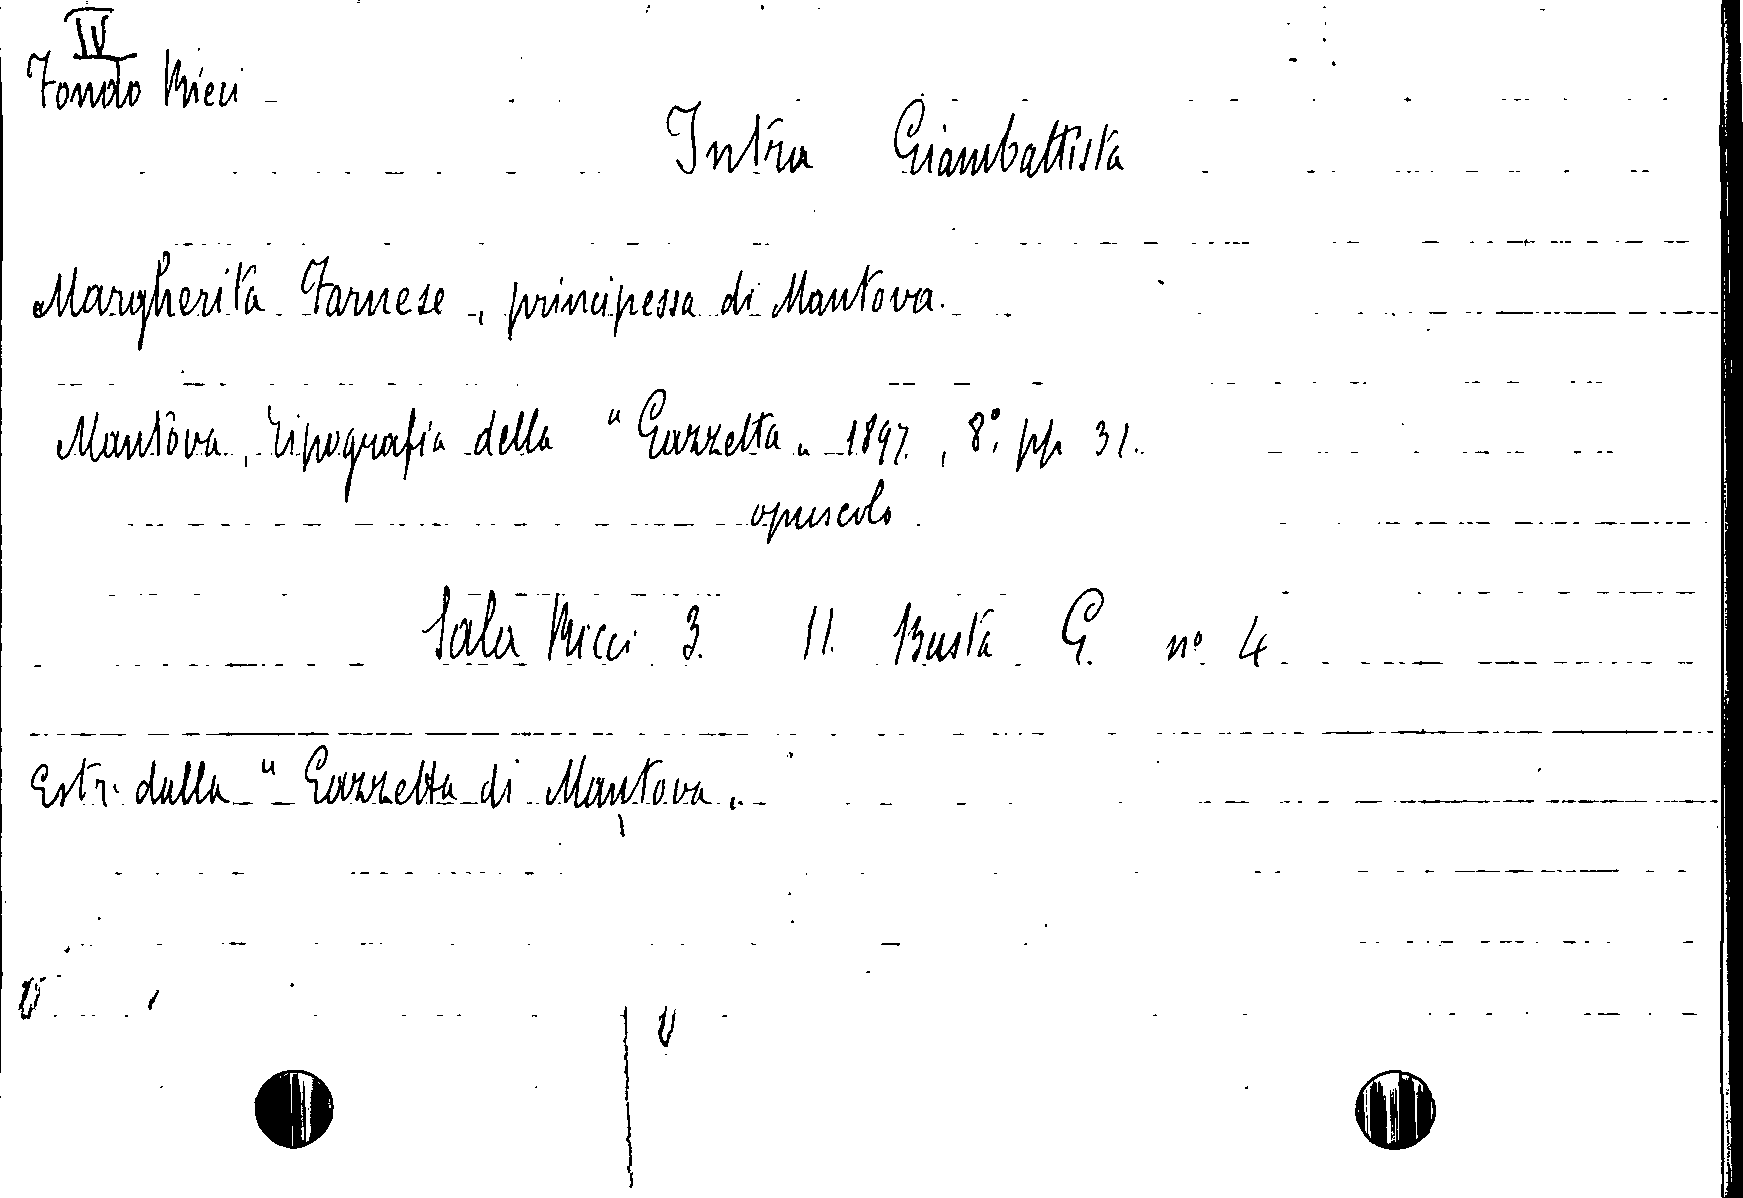 IV
Fondo Ricci
Intra Giambattista
Margherita Farnese, principessa di Mantova.
Mantova, tipografia della "Gazzetta„ 1897, 8°. pp 31.
opuscolo
Sala Ricci 3. 11. Busta G. n° 4
Estr. dalla "Gazzetta di Mantova„
V
V